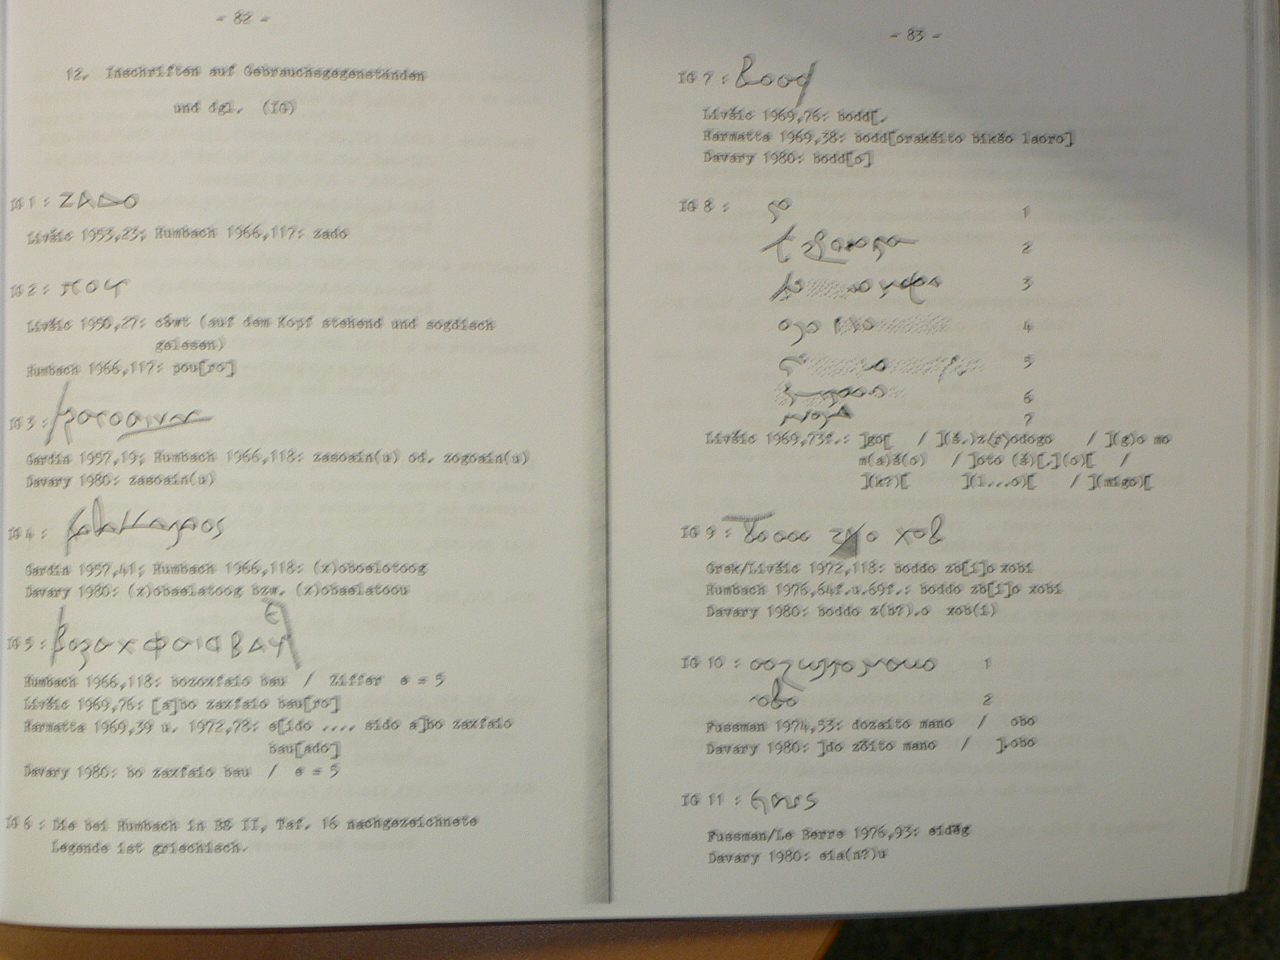 - 82 -
12. Inschriften auf Gebrauchsgegenständen
und dgl. (IG)
IG 1 : ΖΑΔΟ
Livšic 1953,23; Humbach 1966,117: zado
IG 2 :
Livšic 1950,27: cẟwt (auf dem Kopf stehend und sogdisch
gelesen)
Humbach 1966,117: pou[ro]
IG 3 :
Gardin 1957,19; Humbach 1966,118: zasoain(u) od. zogoain(u)
Davary 1980: zasoain(u)
IG 4 :
Gardin 1957,41; Humbach 1966,118: (x)oboelotoog
Davary 1980: (x)obaelatoog bzw. (x)obaelatoou
IG 5 :
Humbach 1966,118: bozoxfaio bau / Ziffer e = 5
Livšic 1969,76: [a]bo zaxfaio bau[ro]
Harmatta 1969,39 u. 1972,78: e[ido .... sido a]bo zaxfaio
bau[ado]
Davary 1980: bo zaxfaio bau / e = 5
IG 6 : Die bei Humbach in BS II, Taf. 16 nachgezeichnete
Legende ist griechisch.
- 83 -
IG 7 :
Livšic 1969,76: bodd[.
Harmatta 1969,38: bodd[orakšito bikšo laoro]
Davary 1980: bodd[o]
IG 8 : 1
2
3
4
5
6
7
Livšic 1969,73f.: ]go[ / ](š.)z(r)odogo / ](g)o mo
m(a)š(o) / ]oto (š)[.](o)[ /
](k?)[ ](l...o)[ / ](migo)[
IG 9 :
Grek/Livšic 1972,118: boddo zb[i]o xobi
Humbach 1976,64f.u.69f.: boddo zb[i]o xobi
Davary 1980: boddo z(b?).o xob(i)
IG 10 : 1
2
Fussman 1974,53: dozaito mano / obo
Davary 1980: ]do zōito mano / ].obo
IG 11 :
Fussman/Le Berre 1976,93: eidēg
Davary 1980: eia(n?)u